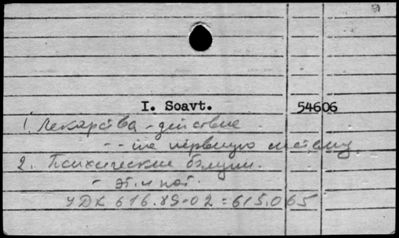 I. Soavt. 54606
1. Лекарства - действие
- - на нервную систему
2. Психические бол-ни.
- эт. и пат.
УДК 616.89-02 = 615.065